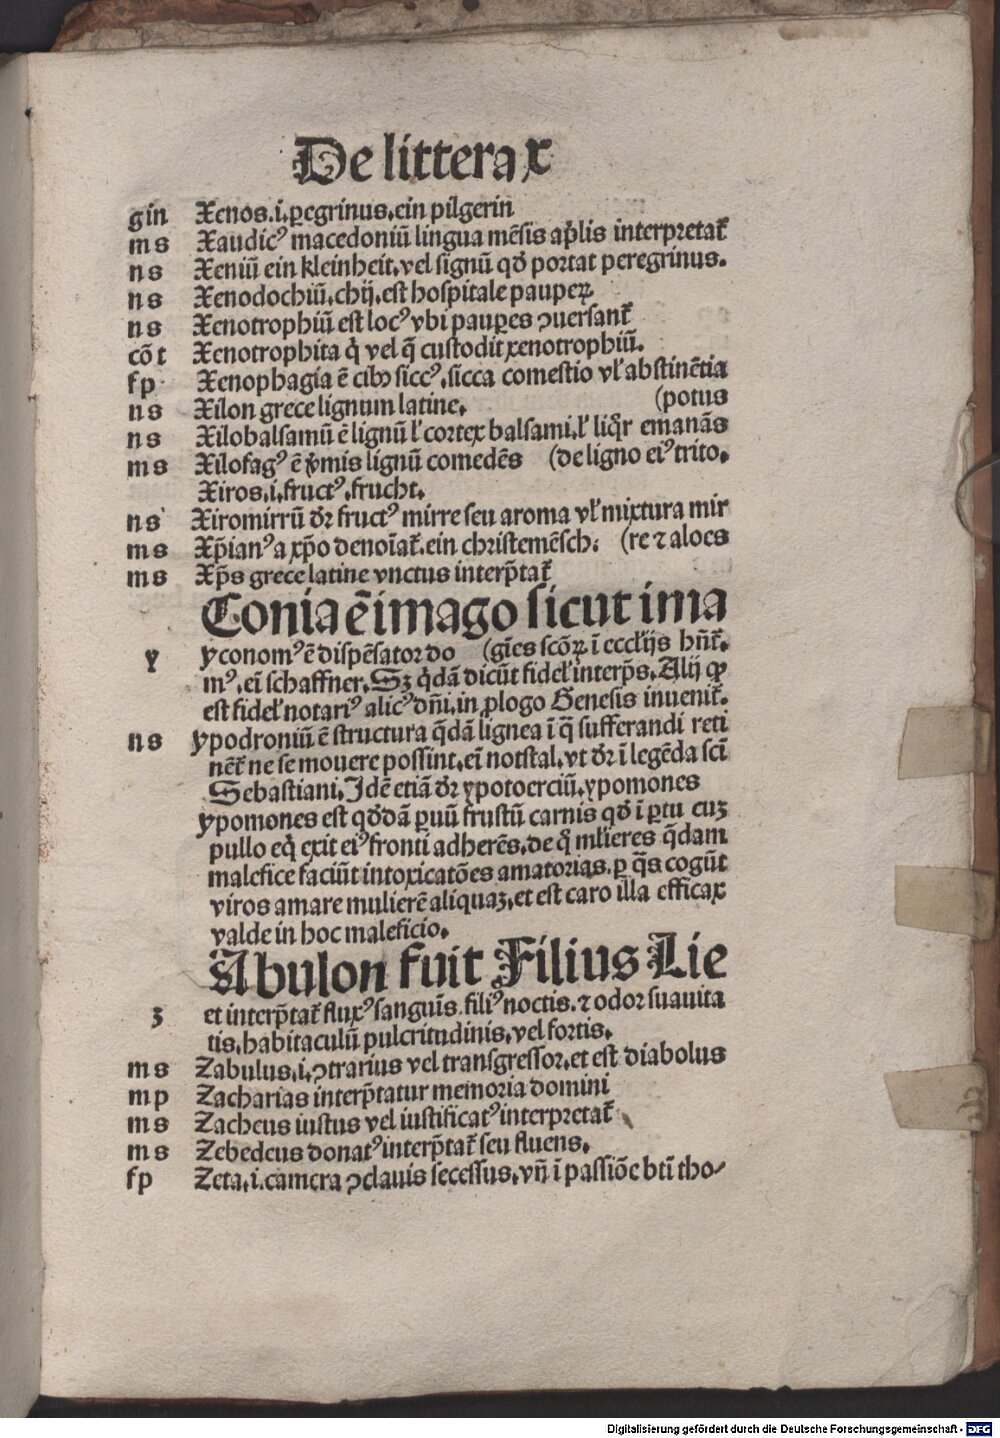 De littera x
gin Xenos.i.ꝑegrinus.ein pilgerin
ms Xaudicꝰ macedoniũ lingua mẽsis ap̃lis interpretat̃
ns Xeniũ ein kleinheit.vel signũ qđ portat peregrinus.
ns Xenodochiũ.chij.est hospitale pauperꝝ
ns Xenotrophiũ est locꝰ vbi pauꝑes ꝯuersant̃
cõt Xenotrophita q̇ vel q̃ custodit xenotrophiũ.
fp Xenophagia ẽ cibꝰ siccꝰ.sicca comestio vł abstinẽtia
ns Xilon grece lignum latine. (potus
ns Xilobalsamũ ẽ lignũ ł cortex balsami.ł liq̃r emanãs
ms Xilofagꝰ ẽ v̓mis lignũ comedẽs (de ligno eiꝰ trito.
Xiros.i.fructꝰ.frucht.
ns Xiromirrũ dr̃ fructꝰ mirre seu aroma vł mixtura mir
ms Xp̃ianꝰ a xp̃o denoĩat̃.ein christemẽsch. (re ⁊ aloes
ms Xp̃s grece latine vnctus interp̃tat̃
Yconia ẽ imago sicut ima
y yconomꝰ ẽ dispẽsator do (gĩes scõꝝ ĩ ecclijs hñt̃.
mꝰ.eĩ schaffner.Sꝫ q̇dã dicũt fideł interp̃s.Alij ꝙ
est fideł notariꝰ alicꝰ dñi.in ꝓlogo Genesis inuenit̃.
ns ypodroniũ ẽ structura q̃dã lignea ĩ q̃ sufferandi reti
nẽt̃ ne se mouere possint.eĩ notstal.vt dr̃ ĩ legẽda scĩ
Sebastiani.Idẽ etiã dr̃ ypotoerciũ.ypomones
ypomones est qđdã ꝑuũ frustũ carnis qđ ĩ ꝑtu cuꝫ
pullo eq̇ exit eiꝰ fronti adherẽs.de q̊ mlieres q̃dam
malefice faciũt intoxicatões amatorias.ꝑ q̃s cogũt
viros amare mulierẽ aliquaꝫ.et est caro illa efficax
valde in hoc maleficio.
Zabulon fuit Filius Lie
ꝫ et interp̃tat̃ fluxꝰ sanguĩs.filiꝰ noctis.⁊ odor suauita
tis.habitaculũ pulcritudinis.vel fortis.
ms Zabulus.i.ꝯtrarius vel transgressor.et est diabolus
mp Zacharias interp̃tatur memoria domini
ms Zacheus iustus vel iustificatꝰ interpretat̃
ms Zebedeus donatꝰ interp̃tat̃ seu fluens.
fp Zeta.i.camera ꝯclauis secessus.vñ ĩ passiõe bti tho⸗
Digitalisierung gefördert durch die Deutsche Forschungsgemeinschaft - DFG